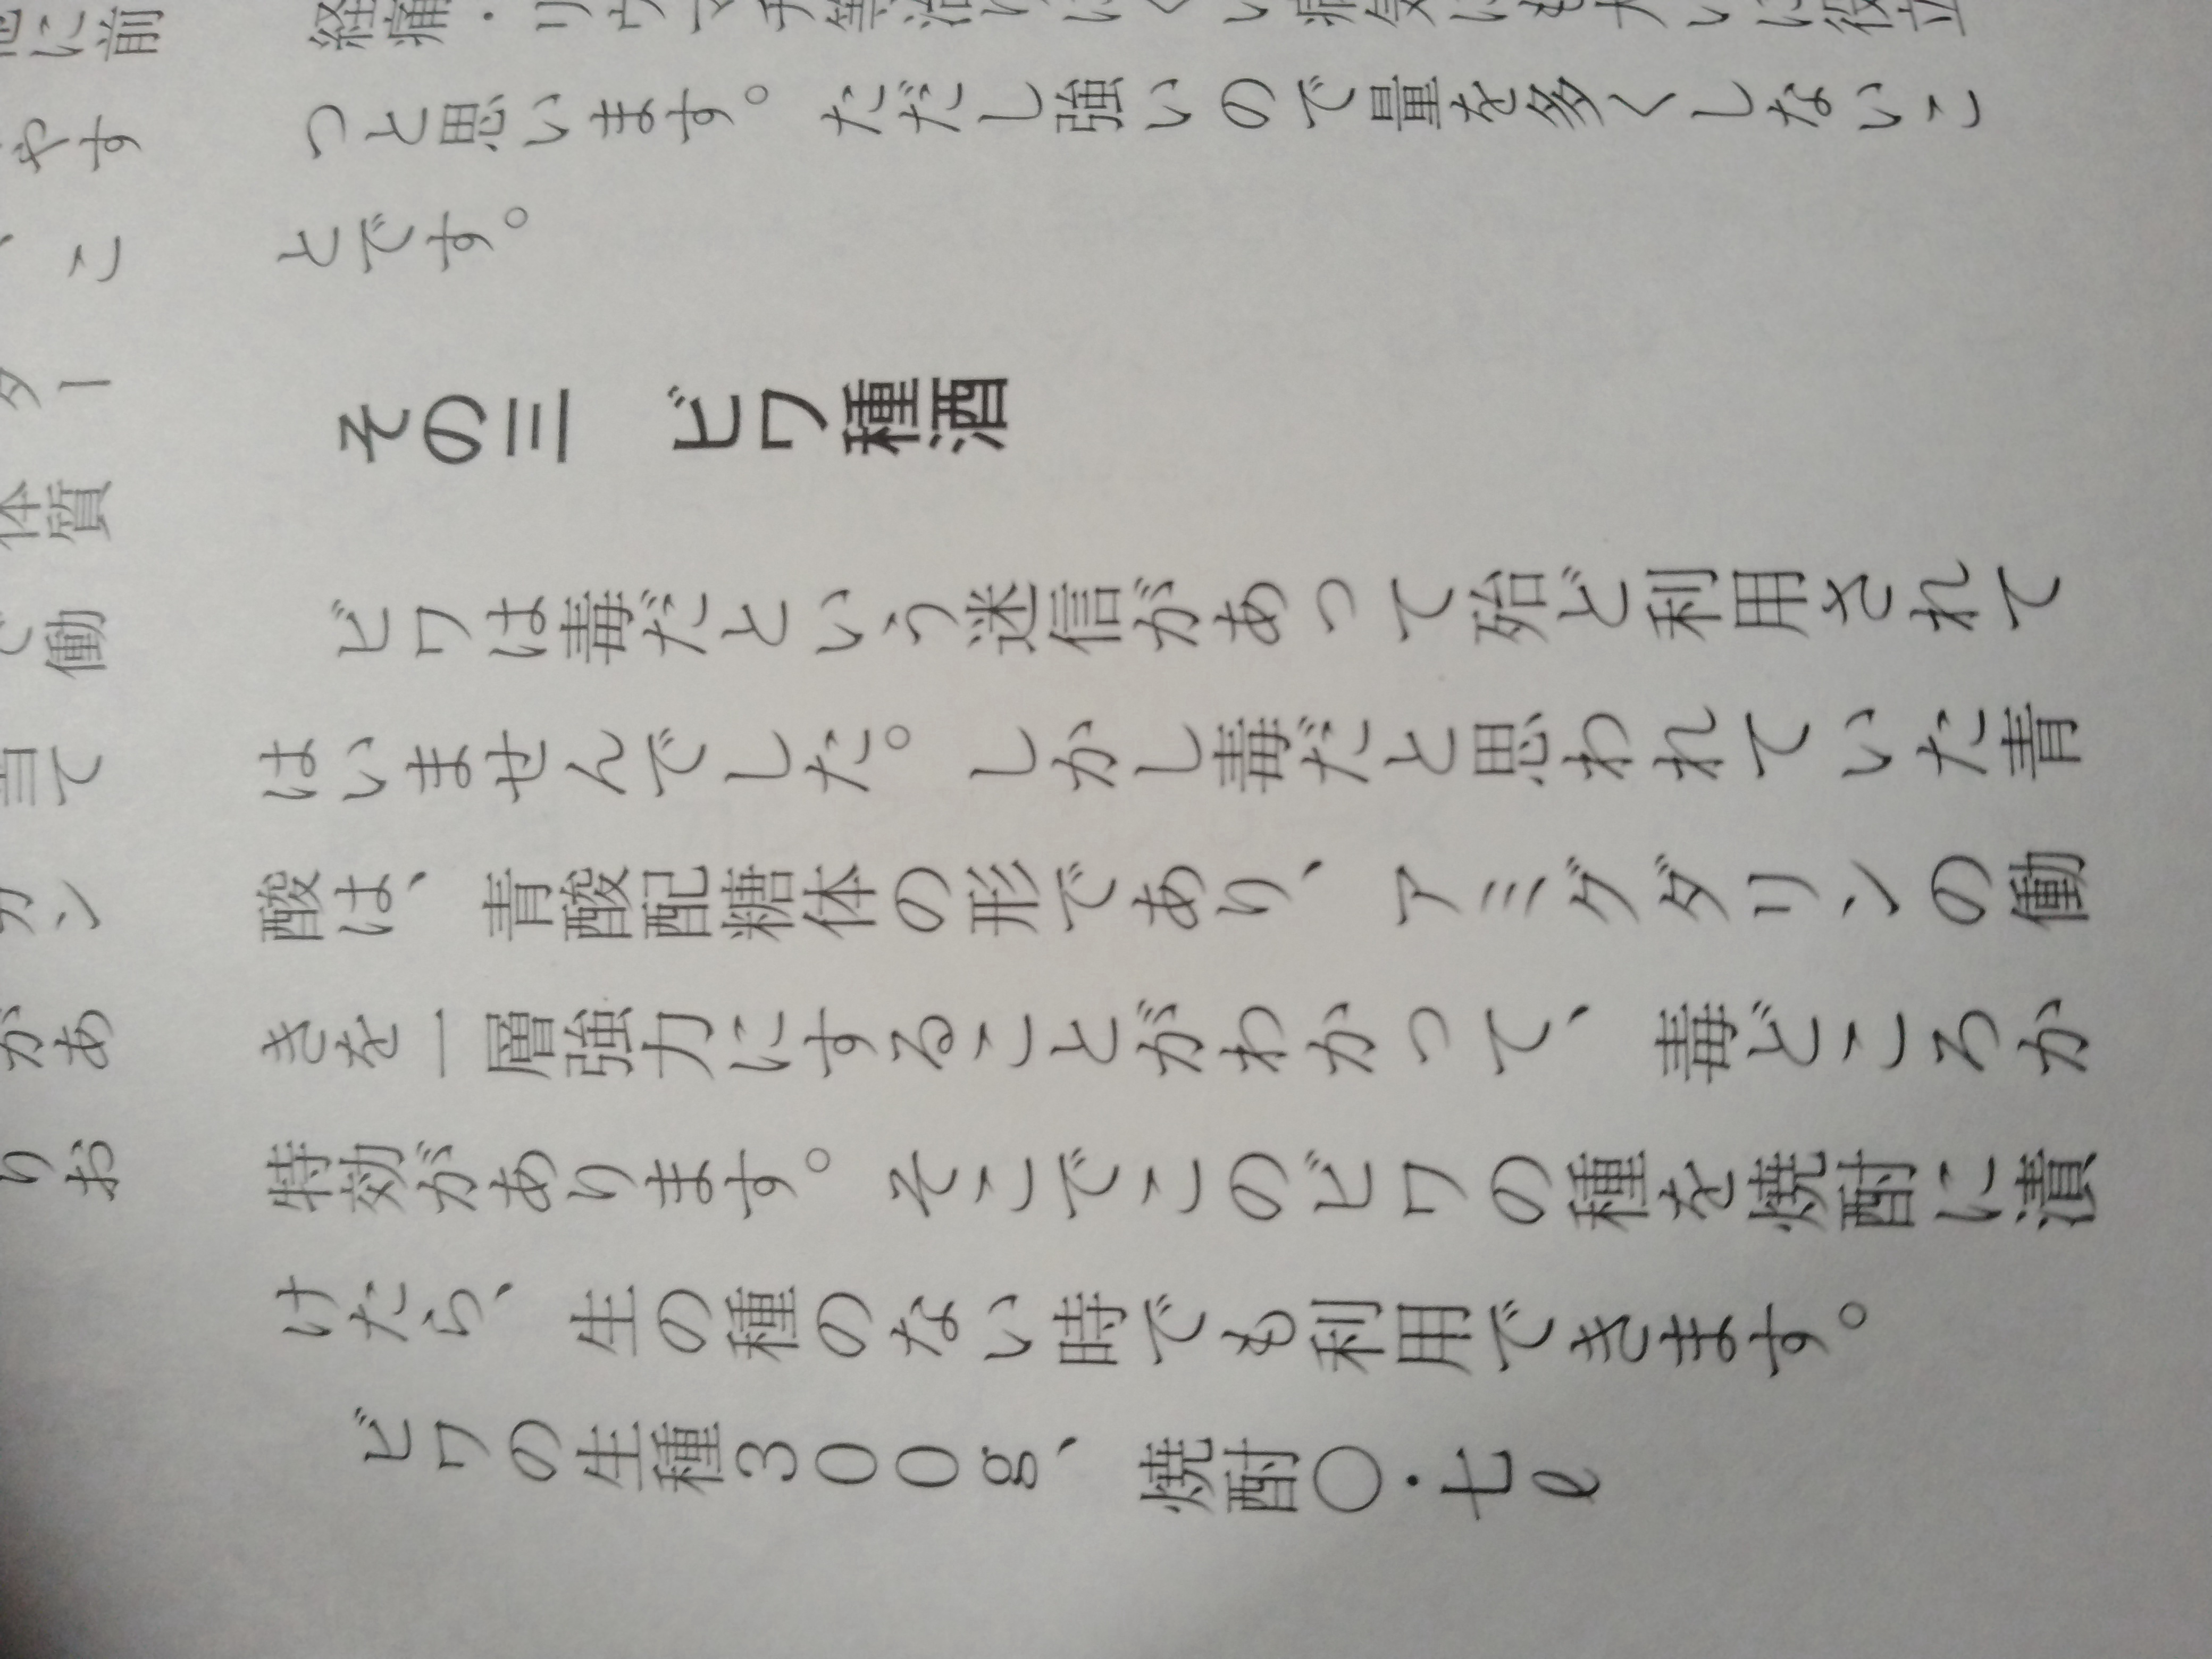 に前
やす
、こ
ター
体質
で働
当て
カン
があ
りお
経痛・リウマチ等治りにくい病気にも大いに役立
つと思います。ただし強いので量を多くしないこ
とです。
その三 ビワ種酒
ビワは毒だという迷信があって殆ど利用されて
はいませんでした。しかし毒だと思われていた青
酸は、青酸配糖体の形であり、アミグダリンの働
きを一層強力にすることがわかって、毒どころか
特効があります。そこでこのビワの種を焼酎に漬
けたら、生の種のない時でも利用できます。
ビワの生種300g、焼酎〇・七ℓ